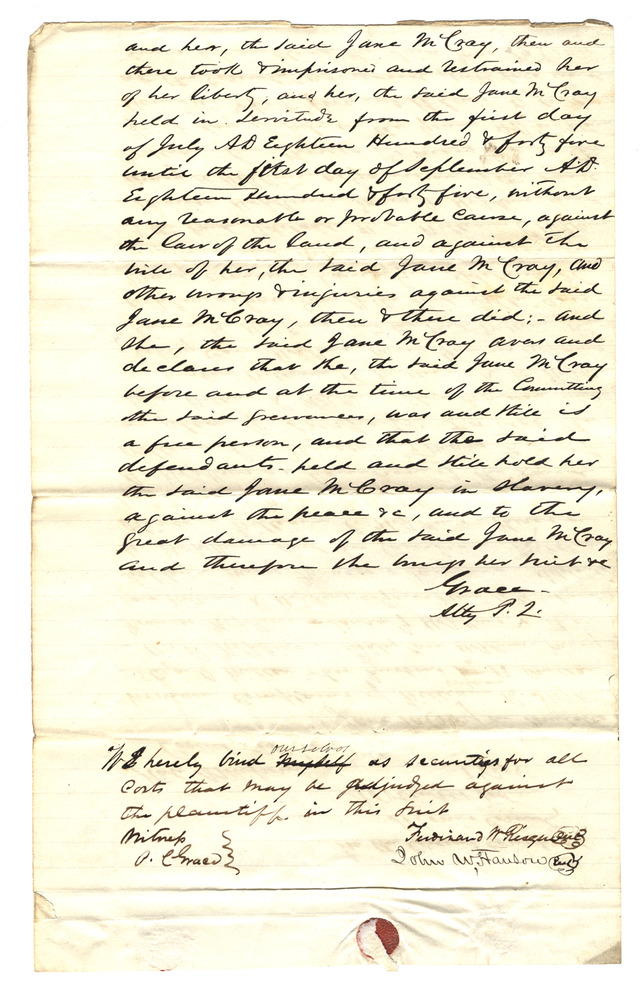 and her, the said Jane McCray, then and
there took & imprisoned and restrained her
of her liberty, and her, the said Jane McCray
held in Servitude from the first day
of July AD Eighteen Hundred & forty five
until the first day of September A.D.
Eighteen Hundred & forty five, without
any reasonable or probable Cause, against
the law of the land, and against the
will of her, the said Jane McCray, and
other wrongs & injuries against the said
Jane McCray, then & there did; - and
she, the said Jane McCray avers and
declares that she, the said Jane McCray
before and at the time of the Committing
the said grievances, was and still is
a free person, and that the said
defendants - held and still hold her
the said Jane McCray in Slavery,
against the peace &c, and to the
great damage of the said Jane McCray
and therefore she brings her suit &c
Grace -
Atty P. Q.
ourselves
We hereby bind myself as securities for all
Costs that may be adjudged against
the plaintiff in this Suit
Witness
P. C Grace
Ferdinand W Risque
John W, Hanson